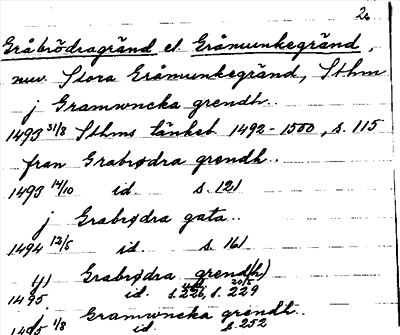 2.
Gråbrödragränd el Gråmunkegränd,
nuv. Stora Gråmunkegränd, Sthm
j Gramwncka grendh..
1493 31/8 Sthms tänkeb 1492-1500, s. 115
fran Grabrødra grendh..
1493 14/10 id. s. 121
j Grabrødra gata..
1494 12/5 id. s. 161
Grabrødra grend(h)
1495 id. s. 226, s. 229 20/5
j Gramwncka grendh..
1495 1/8 id. s. 252